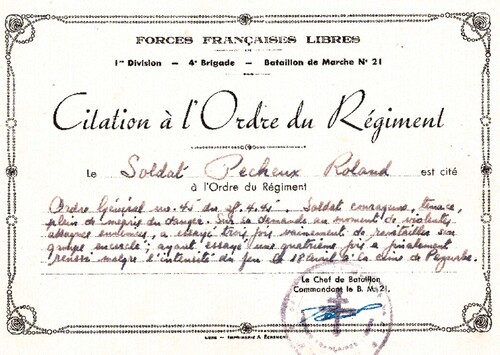 FORCES FRANÇAISES LIBRES
1re Division — 4e Brigade — Bataillon de Marche N° 21
Citation à l'Ordre du Régiment
Le Soldat Pecheux Roland est cité
à l'Ordre du Régiment
Ordre Général no. du 4. Soldat courageux, tenace,
plein de mépris du danger. Sur sa demande au moment de violentes
attaques ennemies, a essayé trois fois vainement de ravitailler son
groupe encerclé; ayant essayé une quatrième fois a finalement
réussi malgré l'intensité du feu le 18 avril à la
Le Chef de Bataillon
Commandant le B. M. 21.
IMPRIMERIE A.